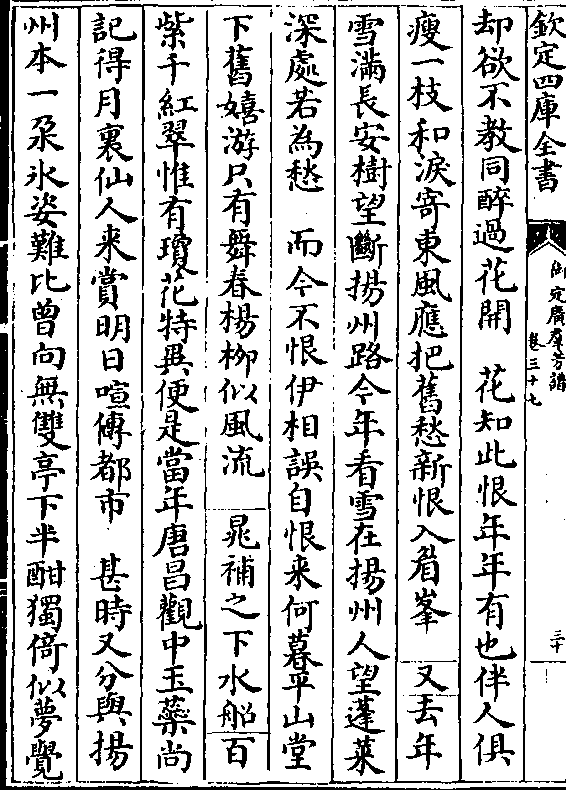 欽定四庫全書
御定廣羣芳譜
卷三十七
三十
却欲不教同醉過花開　花知此恨年年有也伴人俱
瘦一枝和淚寄東風應把舊愁新恨入眉峯　又去年
雪滿長安樹望斷揚州路今年看雪在揚州人望蓬萊
深處若為愁　而今不恨伊相誤自恨来何暮平山堂
下舊嬉游只有舞春楊柳似風流　晁補之下水船百
紫千紅翠惟有瓊花特異便是當年唐昌觀中玉蘂尚
記得月裏仙人来賞明日喧傳都市　甚時又分與揚
州本一朶氷姿難比曾向無雙亭下半酣獨倚似夢覺